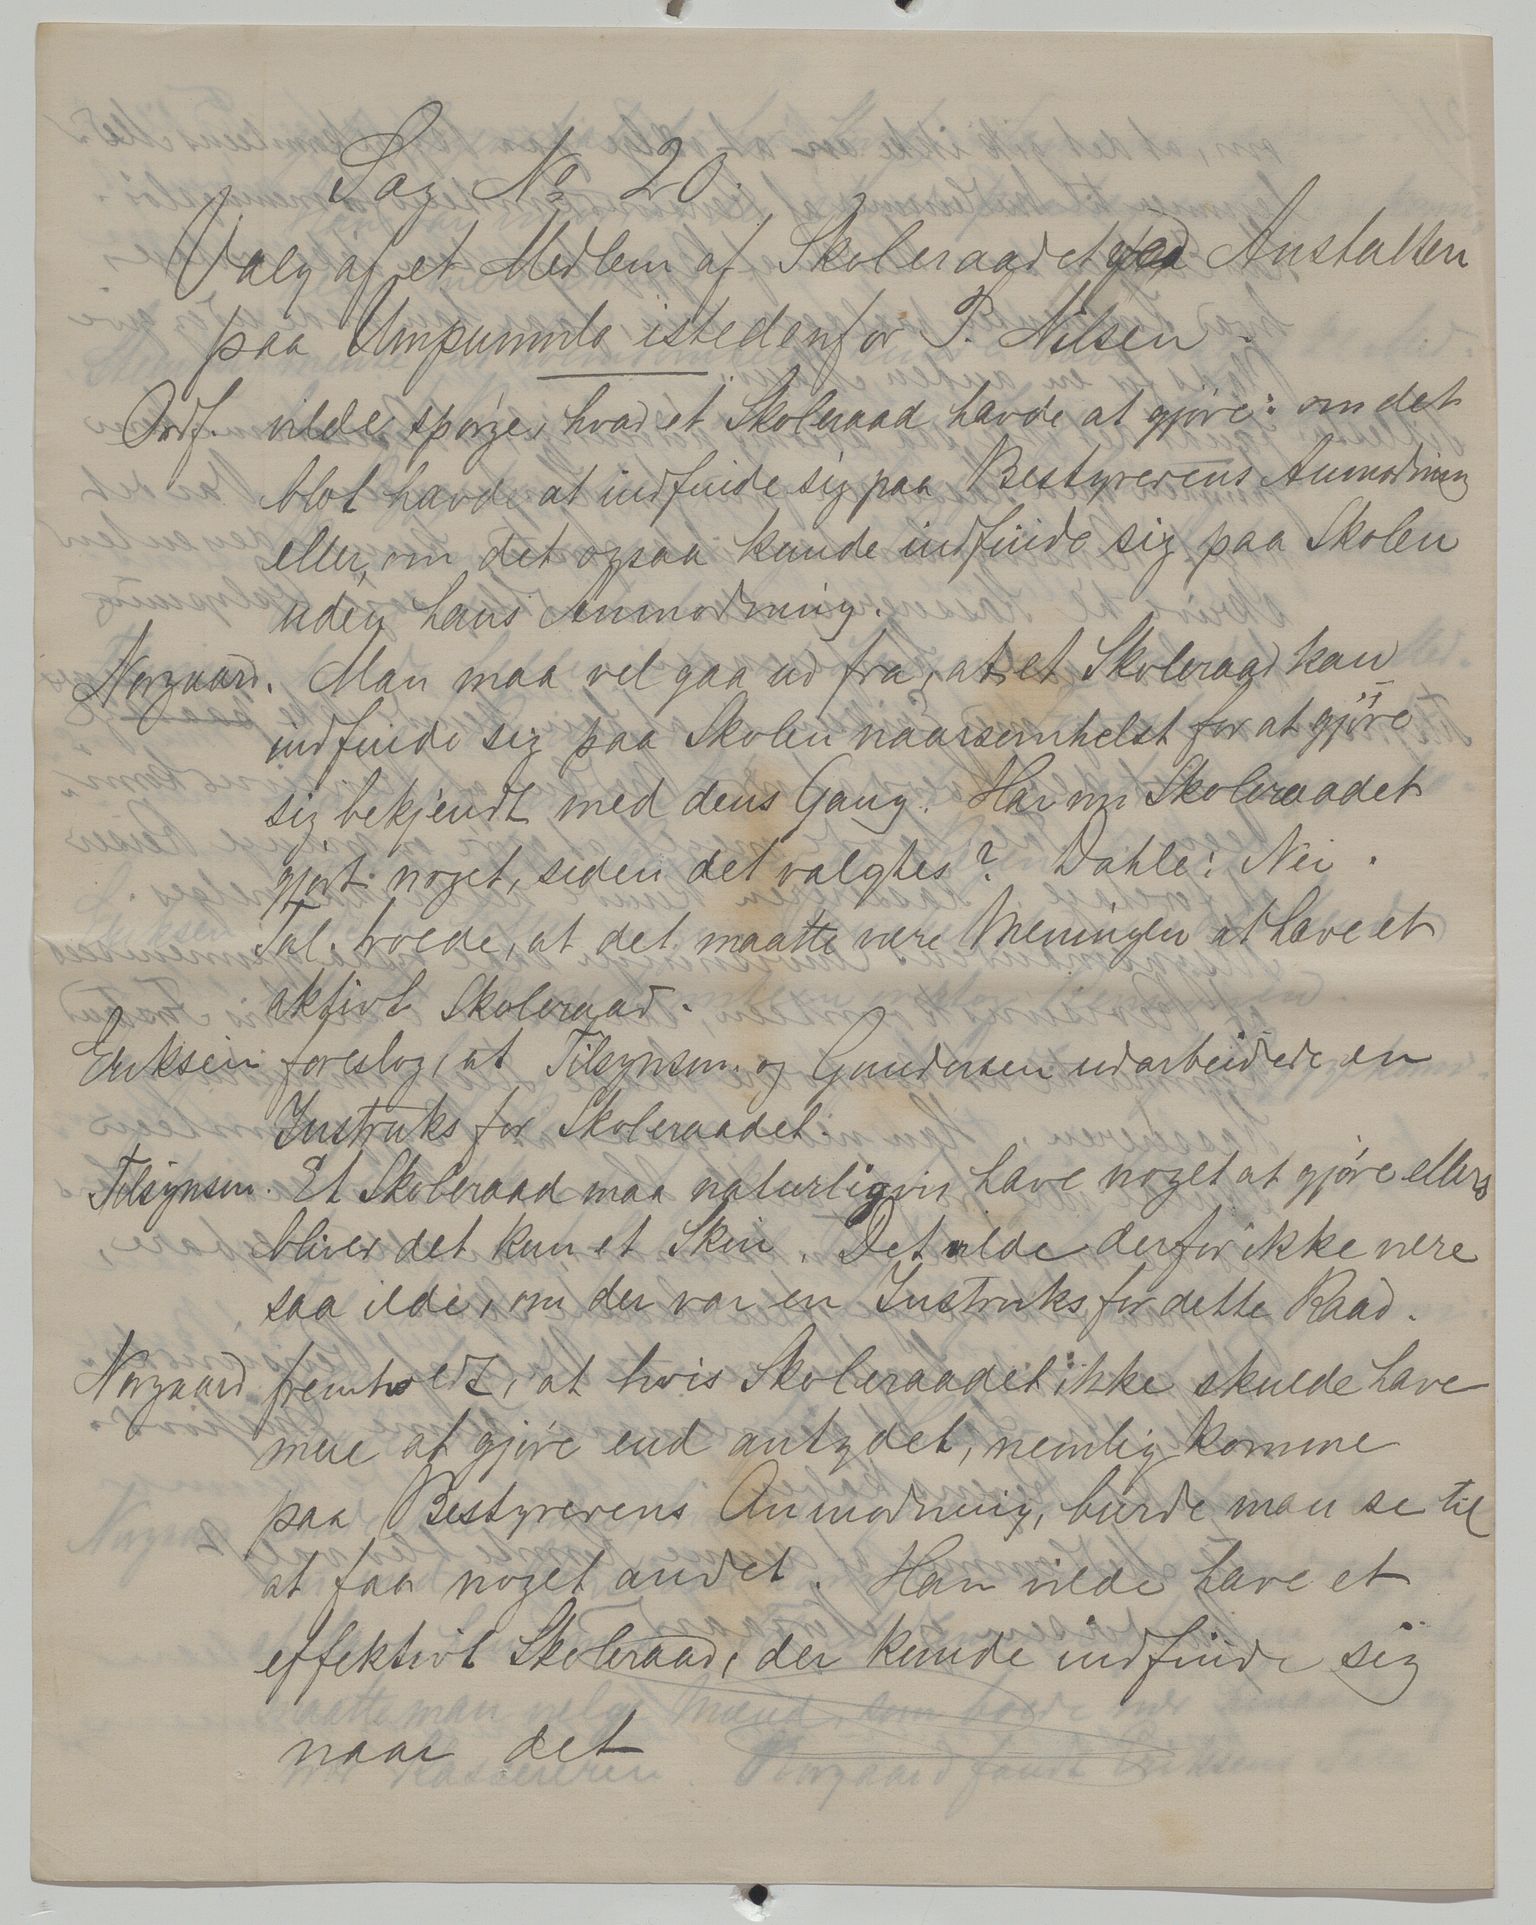 Sag No 20.
Valg af et Medlem af Skoleraadet ved Anstalten
paa Umpumulo istedenfor P. Nilsen.
Ordf. vilde spørge, hvad et Skoleraad havde at gjøre: om det
blot havde at indfinde sig paa Bestyrerens Anmodning
eller, om det ogsaa kunde indfinde sig paa Skolen
uden hans Anmodning.
Norgaard. Man maa vel gaa ud fra, at et Skoleraad kan
indfinde sig paa Skolen naarsomhelst for at gjøre
sig bekjendt med dens Gang. Har nu Skoleraadet
gjort noget, siden det valgtes? Dahle: Nei.
Tal. troede, at det maatte være Meningen at have et
aktivt Skoleraad.
Eriksen foreslog, at Tilsynsm. og Gundersen udarbeidede en
Instruks for Skoleraadet.
Tilsynsm. Et Skoleraad maa naturligvis have noget at gjøre ellers
bliver det kun et Skin. Det vilde derfor ikke være
saa ilde, om der var en Instruks for dette Raad.
Norgaard fremholdt, at hvis Skoleraadet ikke skulde have
mere at gjøre end antydet, nemlig komme
paa Bestyrerens Anmodning, burde man se til
at faa noget andet. Han vilde have et
effektivt Skoleraad, der kunde indfinde sig
naar det